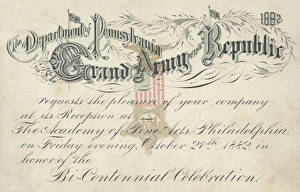 1882
The Department of Pennsylvania
Grand Army of the Republic
requests the pleasure of your company
at its Reception at
The Academy of Fine Arts, Philadelphia,
on Friday evening, October 27th, 1882, in
honor of the
Bi-Centennial Celebration.